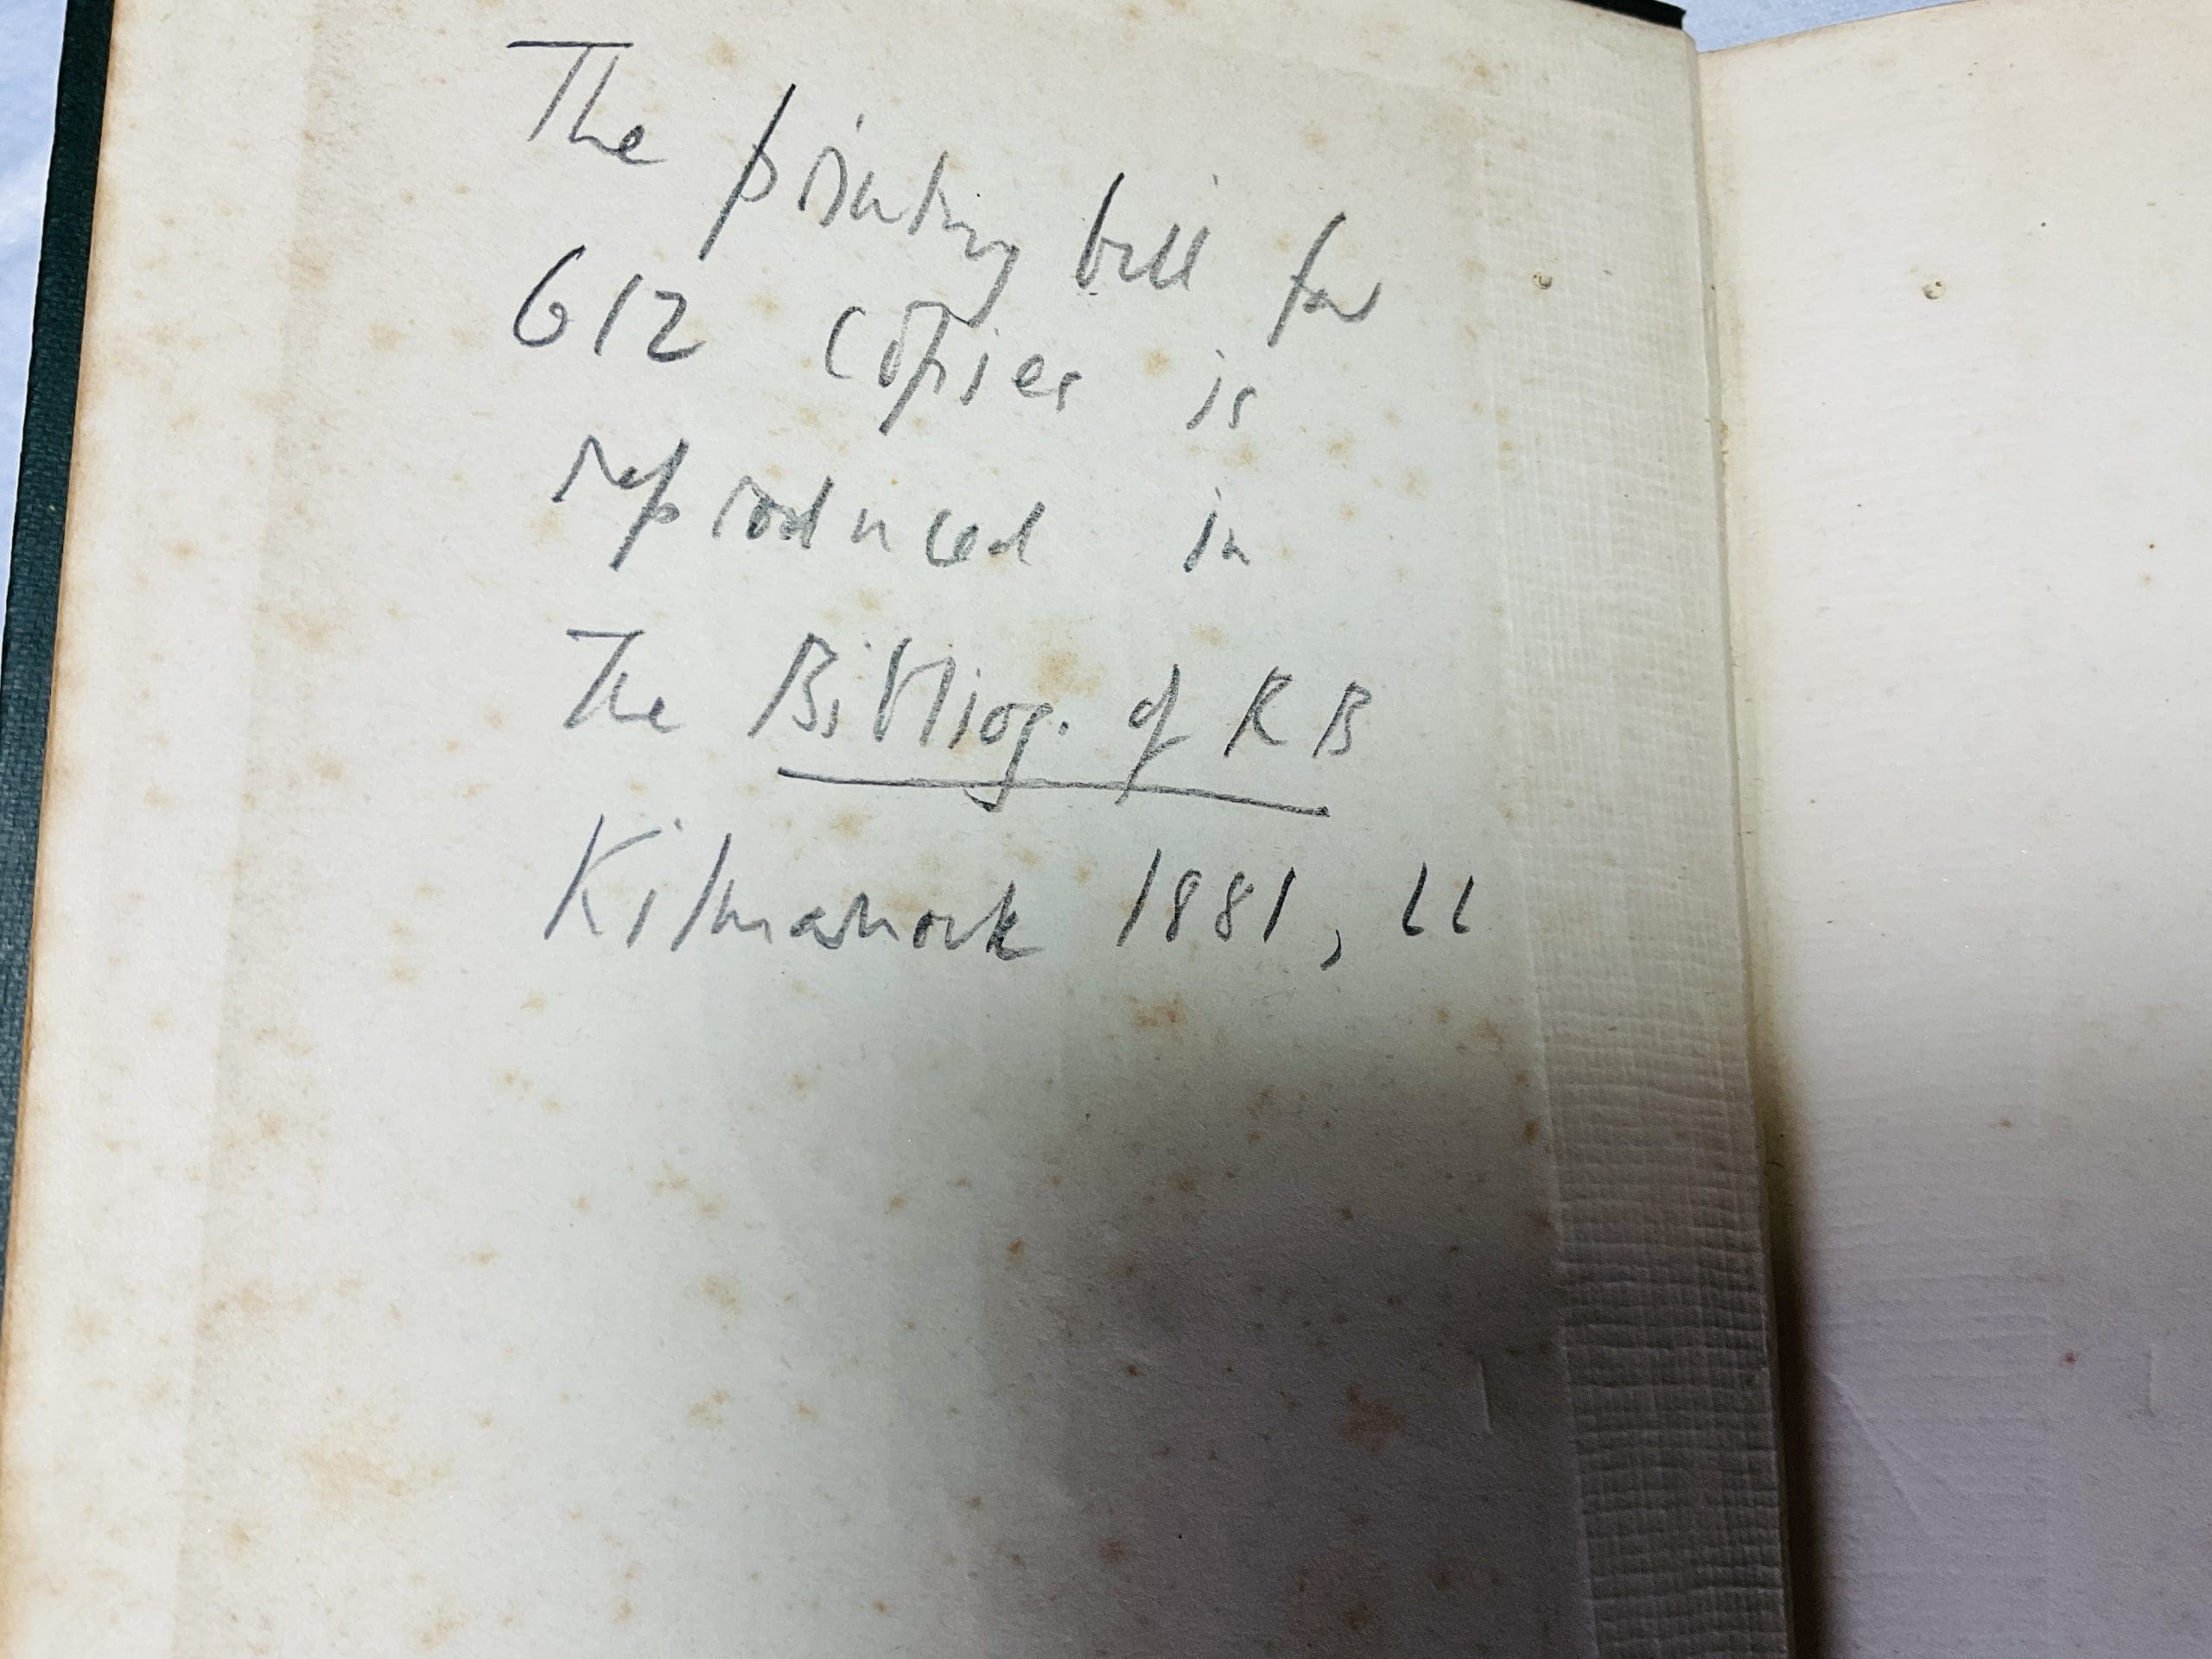 The printing bill for
612 copies is
reproduced in
The Bibliog. of RB
Kilmarnock 1881,